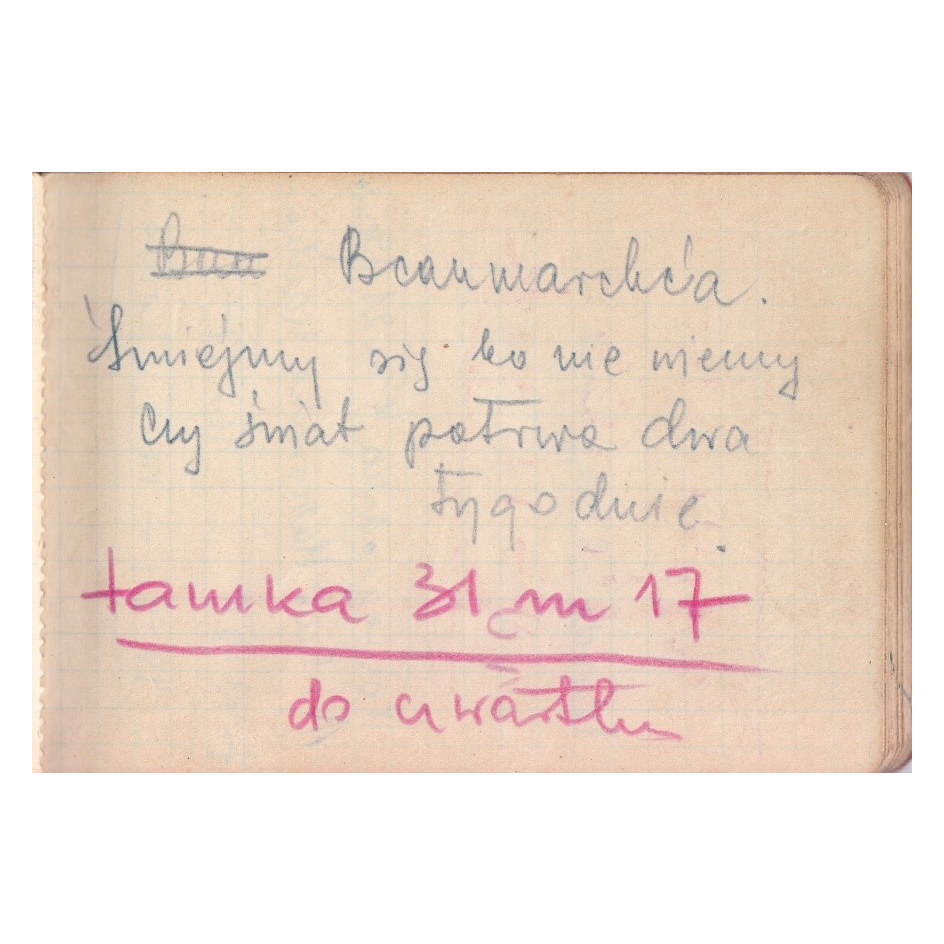 Beaumarché'a.
Śmiejmy się bo nie wiemy
czy świat potrwa dwa
tygodnie.
tamka 31 m 17
do czwartku